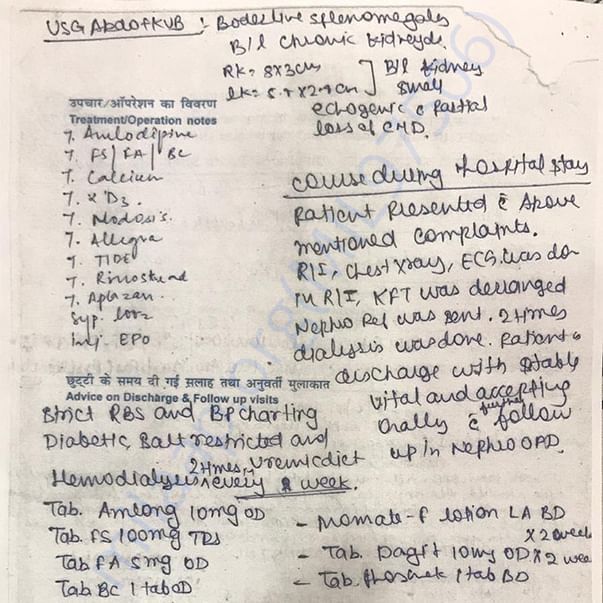 USG Abdo+KUB : Borderline splenomegaly
B/L Chronic kidney ds.
RK = 8X3cm
LK = X2.9 cm ] B/L kidney small
echogenic c Partial
loss of CMD.
उपचार/ऑपरेशन का विवरण
Treatment/Operation notes
T. Amlodipine
T. FS/FA/BC
T. Calcium
T. D3.
T. Nodosis.
T. Allegra
T. TIDE
T.
T.
Syp. looz
Inj. EPO
course during Hospital stay
Patient Presented c Above
mentioned complaints.
R/I, Chest xray, ECG. was don
in R/I, KFT was deranged
Nephro Ref was sent. 2times
dialysis was done. Patient
discharge with stable
vital and accepting
orally c further follow
up in Nephro OPD.
छुट्टी के समय दी गई सलाह तथा अनुवर्ती मुलाकात
Advice on Discharge & Follow up visits
Strict RBS and BP charting
Diabetic, Salt restricted and
2times, Uremic diet
Hemodialysis every week.
Tab. Amlong 10mg OD
Tab. FS 100mg TDS
Tab FA 5mg OD
Tab BC 1 tab OD
- Momate-F lotion LA BD
X 2 week
- Tab. 10mg OD X 2 wee
- Tab. 1 tab BD